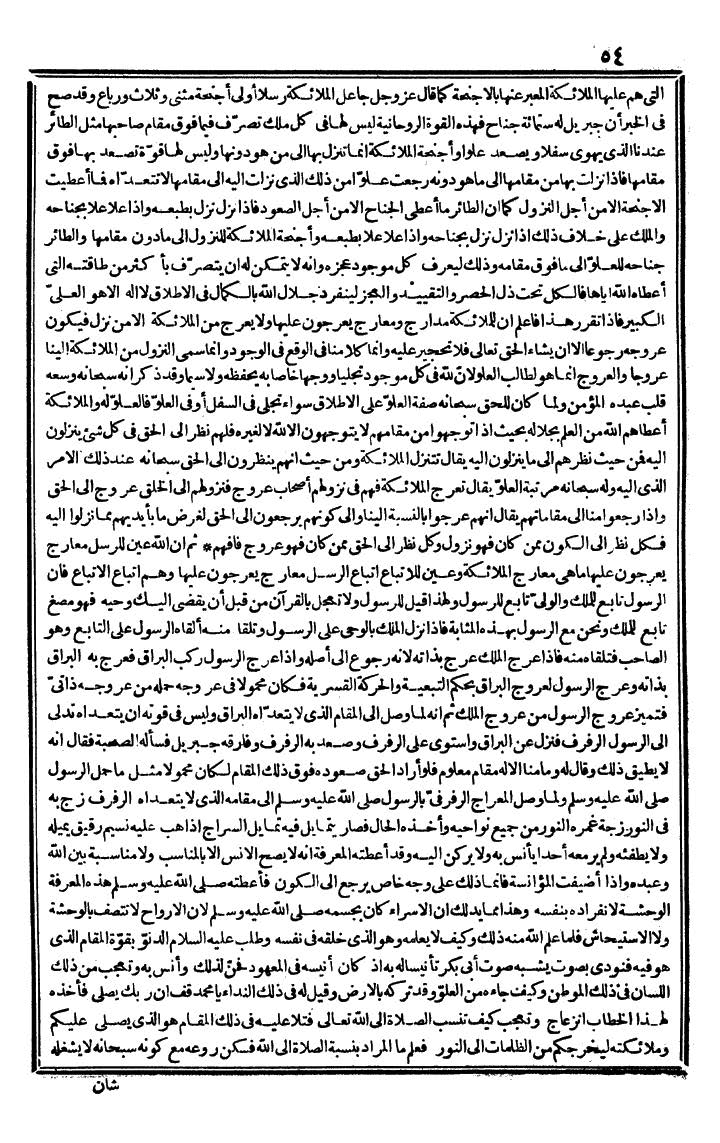 ٥٤
التى هم عليها الملائكة المعبر عنها بالاجنحة كما قال عز وجل جاعل الملائكة رسلا أولى أجنحة مثنى وثلاث ورباع وقد صح
فى الخبر أن جبريل له ستمائة جناح فهذه القوة الروحانية ليس لها فى كل ملك تصرف فيما فوق مقام صاحبها مثل الطائر
عندنا الذى يهوى سفلا ويصعد علوا وأجنحة الملائكة انما تنزل بها الى من هو دونها وليس لها قوة تصعد بها فوق
مقامها فاذا نزلت بها من مقامها الى ما هو دونه رجعت علوا من ذلك الذى نزلت اليه الى مقامها لا تتعداه فما أعطيت
الاجنحة الا من أجل النزول كما ان الطائر ما أعطى الجناح الا من أجل الصعود فاذا نزل نزل بطبعه واذا علا علا بجناحه
والملك على خلاف ذلك اذا نزل نزل بجناحه واذا علا علا بطبعه وأجنحة الملائكة للنزول الى ما دون مقامها والطائر
جناحه للعلو الى ما فوق مقامه وذلك ليعرف كل موجود عجزه وانه لا يتمكن له ان يتصرف بأكثر من طاقته التى
أعطاه الله اياها فالكل تحت ذل الحصر والتقييد والعجز لينفرد جلال الله بالكمال فى الاطلاق لا اله الا هو العلى
الكبير فاذا تقرر هذا فاعلم ان للملائكة مدارج ومعارج يعرجون عليها ولا يعرج من الملائكة الا من نزل فيكون
عروجه رجوعا الا ان يشاء الحق تعالى فلا تحجير عليه وانما كلامنا فى الوقع فى الوجود وانما سمى النزول من الملائكة الينا
عروجا والعروج انما هو لطالب العلو لان لله فى كل موجود تجليا ووجها خاصا به يحفظه ولا سيما وقد ذكر انه سبحانه وسعه
قلب عبده المؤمن ولما كان للحق سبحانه صفة العلو على الاطلاق سواء تجلى فى السفل أو فى العلو فالعلو له والملائكة
أعطاهم الله من العلم بجلاله بحيث اذا توجهوا من مقامهم لا يتوجهون الا لله لا لغيره فلهم نظر الى الحق فى كل شئ ينزلون
اليه فمن حيث نظرهم الى ما ينزلون اليه يقال تتنزل الملائكة ومن حيث انهم ينظرون الى الحق سبحانه عند ذلك الامر
الذى اليه وله سبحانه مرتبة العلو يقال تعرج الملائكة فهم فى نزولهم أصحاب عروج فنزولهم الى الخلق عروج الى الحق
واذا رجعوا منا الى مقاماتهم يقال انهم عرجوا بالنسبة الينا والى كونهم يرجعون الى الحق لغرض ما بأيديهم مما نزلوا اليه
فكل نظر الى الكون ممن كان فهو نزول وكل نظر الى الحق ممن كان فهو عروج فافهم * ثم ان الله عين للرسل معارج
يعرجون عليها ما هى معارج الملائكة وعين للاتباع اتباع الرسل معارج يعرجون عليها وهم اتباع الاتباع فان
الرسول تابع للملك والولى تابع للرسول ولهذا قيل للرسول ولا تعجل بالقرآن من قبل أن يقضى اليك وحيه فهو مصغ
تابع للملك ونحن مع الرسول بهذه المثابة فاذا نزل الملك بالوحى على الرسول وتلقاه منه ألقاه الرسول على التابع وهو
الصاحب فتلقاه منه فاذا عرج الملك عرج بذاته لانه رجوع الى أصله واذا عرج الرسول ركب البراق فعرج به البراق
بذاته وعرج الرسول لعروج البراق بحكم التبعية والحركة القسرية فكان محمولا فى عروجه حمله من عروجه ذاتى
فتميز عروج الرسول من عروج الملك ثم انه لما وصل الى المقام الذى لا يتعداه البراق وليس فى قوته ان يتعداه تدلى
الى الرسول الرفرف فنزل عن البراق واستوى على الرفرف وصعد به الرفرف وفارقه جبريل فسأله الصحبة فقال انه
لا يطيق ذلك وقال له وما منا الا له مقام معلوم فلو أراد الحق صعوده فوق ذلك المقام لكان محمولا مثل ما حمل الرسول
صلى الله عليه وسلم ولما وصل المعراج الرفرفى بالرسول صلى الله عليه وسلم الى مقامه الذى لا يتعداه الرفرف زج به
فى النور زجة غمره النور من جميع نواحيه وأخذه الحال فصار يتمايل فيه تمايل السراج اذا هب عليه نسيم رقيق يميله
ولا يطفئه ولم ير معه أحدا يأنس به ولا يركن اليه وقد أعطته المعرفة انه لا يصح الانس الا بالمناسب ولا مناسبة بين الله
وعبده واذا أضيفت المؤانسة فانما ذلك على وجه خاص يرجع الى الكون فأعطته صلى الله عليه وسلم هذه المعرفة
الوحشة لانفراده بنفسه وهذا مما يدلك ان الاسراء كان بجسمه صلى الله عليه وسلم لان الارواح لا تتصف بالوحشة
ولا الاستيحاش فلما علم الله منه ذلك وكيف لا يعلمه وهو الذى خلقه فى نفسه وطلب عليه السلام الدنو بقوة المقام الذى
هو فيه فنودى بصوت يشبه صوت أبى بكر تأنيسا له به اذ كان أنيسه فى المعهود فحن لذلك وأنس به وتعجب من ذلك
اللسان فى ذلك الموطن وكيف جاءه من العلو وقد تركه بالارض وقيل له فى ذلك النداء يا محمد قف ان ربك يصلى فأخذه
لهذا الخطاب انزعاج وتعجب كيف تنسب الصلاة الى الله تعالى فتلا عليه فى ذلك المقام هو الذى يصلى عليكم
وملائكته ليخرجكم من الظلمات الى النور فعلم ما المراد بنسبة الصلاة الى الله فسكن روعه مع كونه سبحانه لا يشغله
شان